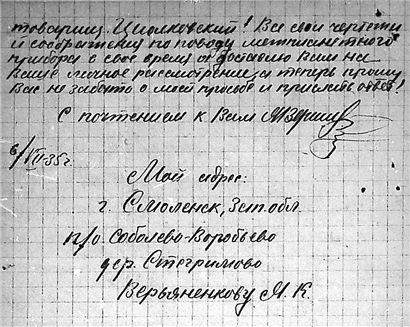 товарищ. Циолковский! Все свои чертежи
и соображения по поводу межпланетного
прибора в свое время я доставлю Вам на
Ваше личное рассмотрение, а теперь прошу
Вас не забыть о моей просьбе и прислать ответ!
С почтением к Вам
6/VII-35 г.
Мой адрес:
г. Смоленск, Зап. обл.
п/о. Соболево-Воробьево
дер. Стегримово
Верьяненкову М. К.